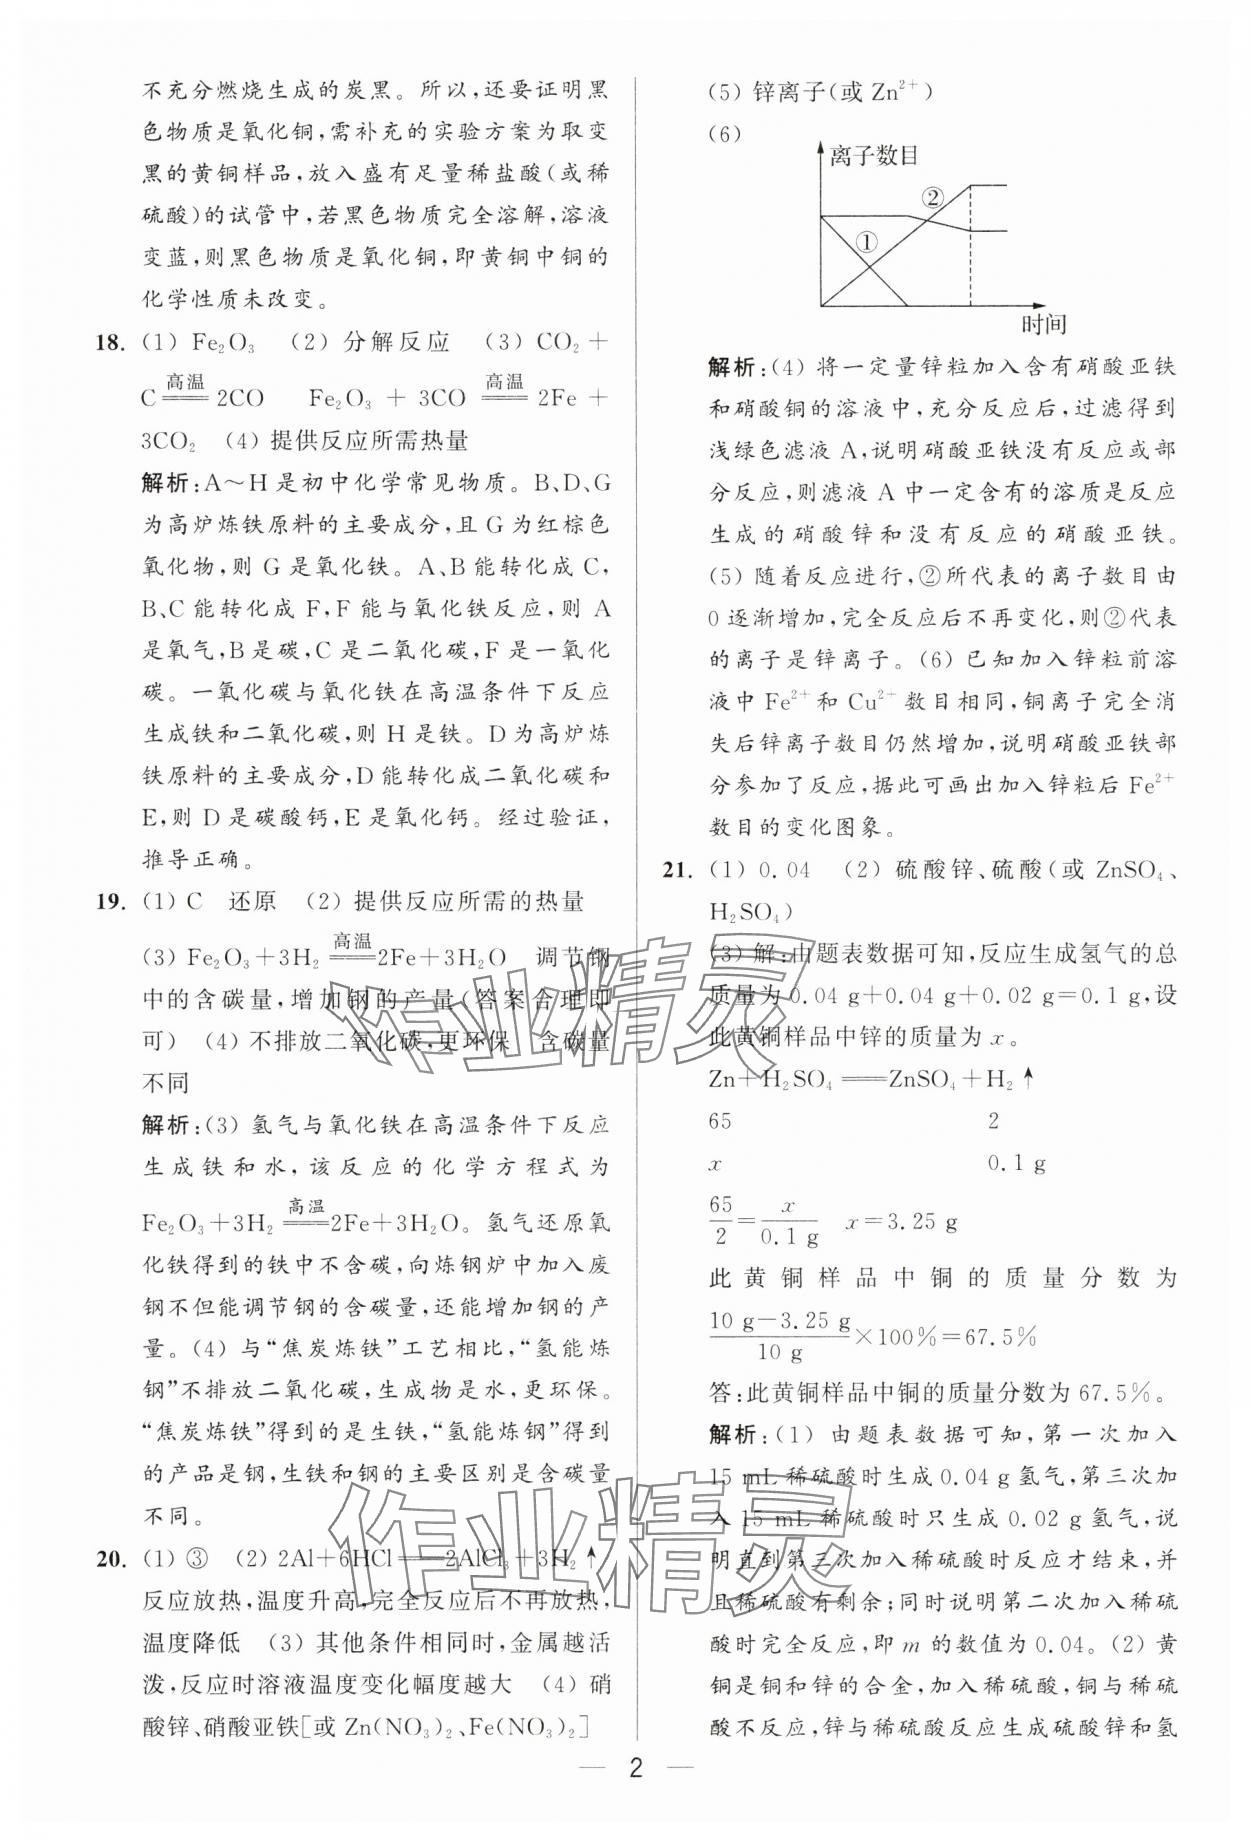 不充分燃烧生成的炭黑。所以,还要证明黑
色物质是氧化铜,需补充的实验方案为取变
黑的黄铜样品,放入盛有足量稀盐酸(或稀
硫酸)的试管中,若黑色物质完全溶解,溶液
变蓝,则黑色物质是氧化铜,即黄铜中铜的
化学性质未改变。
18. (1) Fe₂O₃ (2) 分解反应 (3) CO₂ +
C =高温= 2CO Fe₂O₃ + 3CO =高温= 2Fe +
3CO₂ (4) 提供反应所需热量
解析:A～H 是初中化学常见物质。B、D、G
为高炉炼铁原料的主要成分,且 G 为红棕色
氧化物,则 G 是氧化铁。A、B 能转化成 C,
B、C 能转化成 F,F 能与氧化铁反应,则 A
是氧气,B是碳,C 是二氧化碳,F 是一氧化
碳。一氧化碳与氧化铁在高温条件下反应
生成铁和二氧化碳,则 H 是铁。D 为高炉炼
铁原料的主要成分,D 能转化成二氧化碳和
E,则 D 是碳酸钙,E 是氧化钙。经过验证,
推导正确。
19. (1) C 还原 (2) 提供反应所需的热量
(3) Fe₂O₃+3H₂ =高温= 2Fe+3H₂O 调节钢
中的含碳量,增加钢的产量(答案合理即
可) (4) 不排放二氧化碳,更环保 含碳量
不同
解析:(3) 氢气与氧化铁在高温条件下反应
生成铁和水,该反应的化学方程式为
Fe₂O₃+3H₂ =高温= 2Fe+3H₂O。氢气还原氧
化铁得到的铁中不含碳,向炼钢炉中加入废
钢不但能调节钢的含碳量,还能增加钢的产
量。(4) 与“焦炭炼铁”工艺相比,“氢能炼
钢”不排放二氧化碳,生成物是水,更环保。
“焦炭炼铁”得到的是生铁,“氢能炼钢”得到
的产品是钢,生铁和钢的主要区别是含碳量
不同。
20. (1) ③ (2) 2Al+6HCl══2AlCl₃+3H₂↑
反应放热,温度升高,完全反应后不再放热,
温度降低 (3) 其他条件相同时,金属越活
泼,反应时溶液温度变化幅度越大 (4) 硝
酸锌、硝酸亚铁[或 Zn(NO₃)₂、Fe(NO₃)₂]
(5) 锌离子(或 Zn²⁺)
(6)
离子数目
②
①
时间
解析:(4) 将一定量锌粒加入含有硝酸亚铁
和硝酸铜的溶液中,充分反应后,过滤得到
浅绿色滤液 A,说明硝酸亚铁没有反应或部
分反应,则滤液 A 中一定含有的溶质是反应
生成的硝酸锌和没有反应的硝酸亚铁。
(5) 随着反应进行,②所代表的离子数目由
0 逐渐增加,完全反应后不再变化,则②代表
的离子是锌离子。(6) 已知加入锌粒前溶
液中 Fe²⁺ 和 Cu²⁺ 数目相同,铜离子完全消
失后锌离子数目仍然增加,说明硝酸亚铁部
分参加了反应,据此可画出加入锌粒后 Fe²⁺
数目的变化图象。
21. (1) 0.04 (2) 硫酸锌、硫酸(或 ZnSO₄、
H₂SO₄)
(3) 解:由题表数据可知,反应生成氢气的总
质量为 0.04 g+0.04 g+0.02 g=0.1 g,设
此黄铜样品中锌的质量为 x。
Zn+H₂SO₄══ZnSO₄+H₂↑
65 2
x 0.1 g
65/2 = x/0.1 g x=3.25 g
此黄铜样品中铜的质量分数为
(10 g−3.25 g)/10 g ×100%=67.5%
答:此黄铜样品中铜的质量分数为 67.5%。
解析:(1) 由题表数据可知,第一次加入
15 mL 稀硫酸时生成 0.04 g 氢气,第三次加
入 15 mL 稀硫酸时只生成 0.02 g 氢气,说
明直到第三次加入稀硫酸时反应才结束,并
且稀硫酸有剩余;同时说明第二次加入稀硫
酸时完全反应,即 m 的数值为 0.04。(2) 黄
铜是铜和锌的合金,加入稀硫酸,铜与稀硫
酸不反应,锌与稀硫酸反应生成硫酸锌和氢
作业精灵
作业精灵
— 2 —